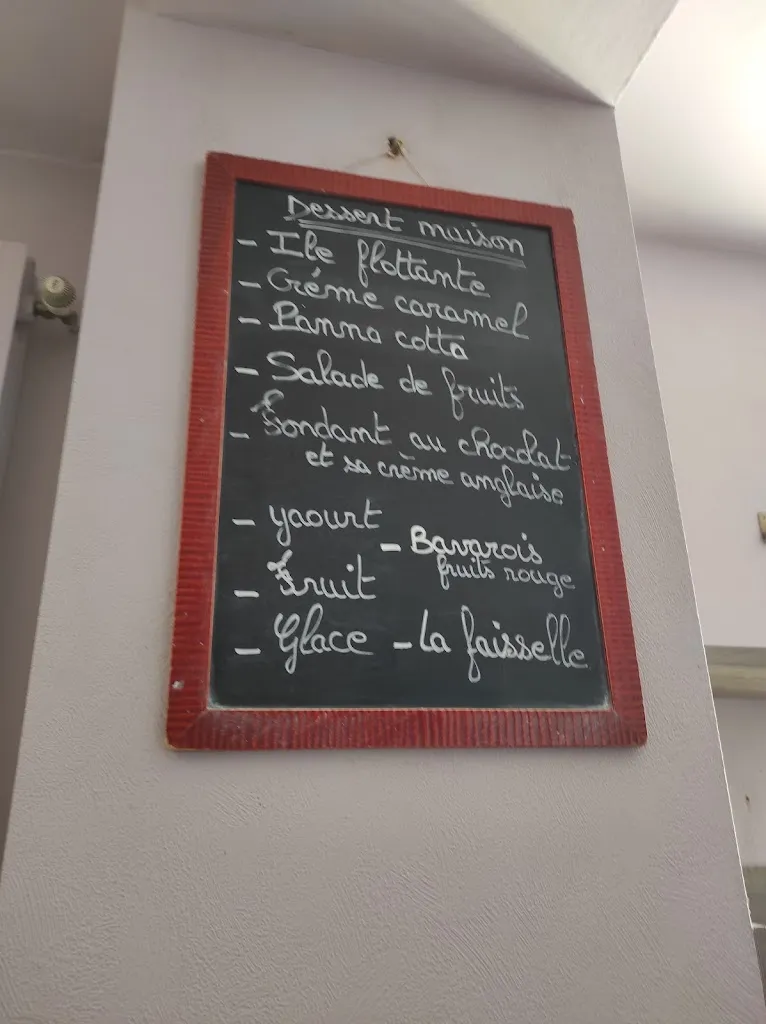 Dessert maison
- Ile flottante
- Créme caramel
- Panna cotta
- Salade de fruits
- Fondant au chocolat
et sa crème anglaise
- yaourt
- Bavarois
fruits rouge
- Fruit
- Glace - La faisselle